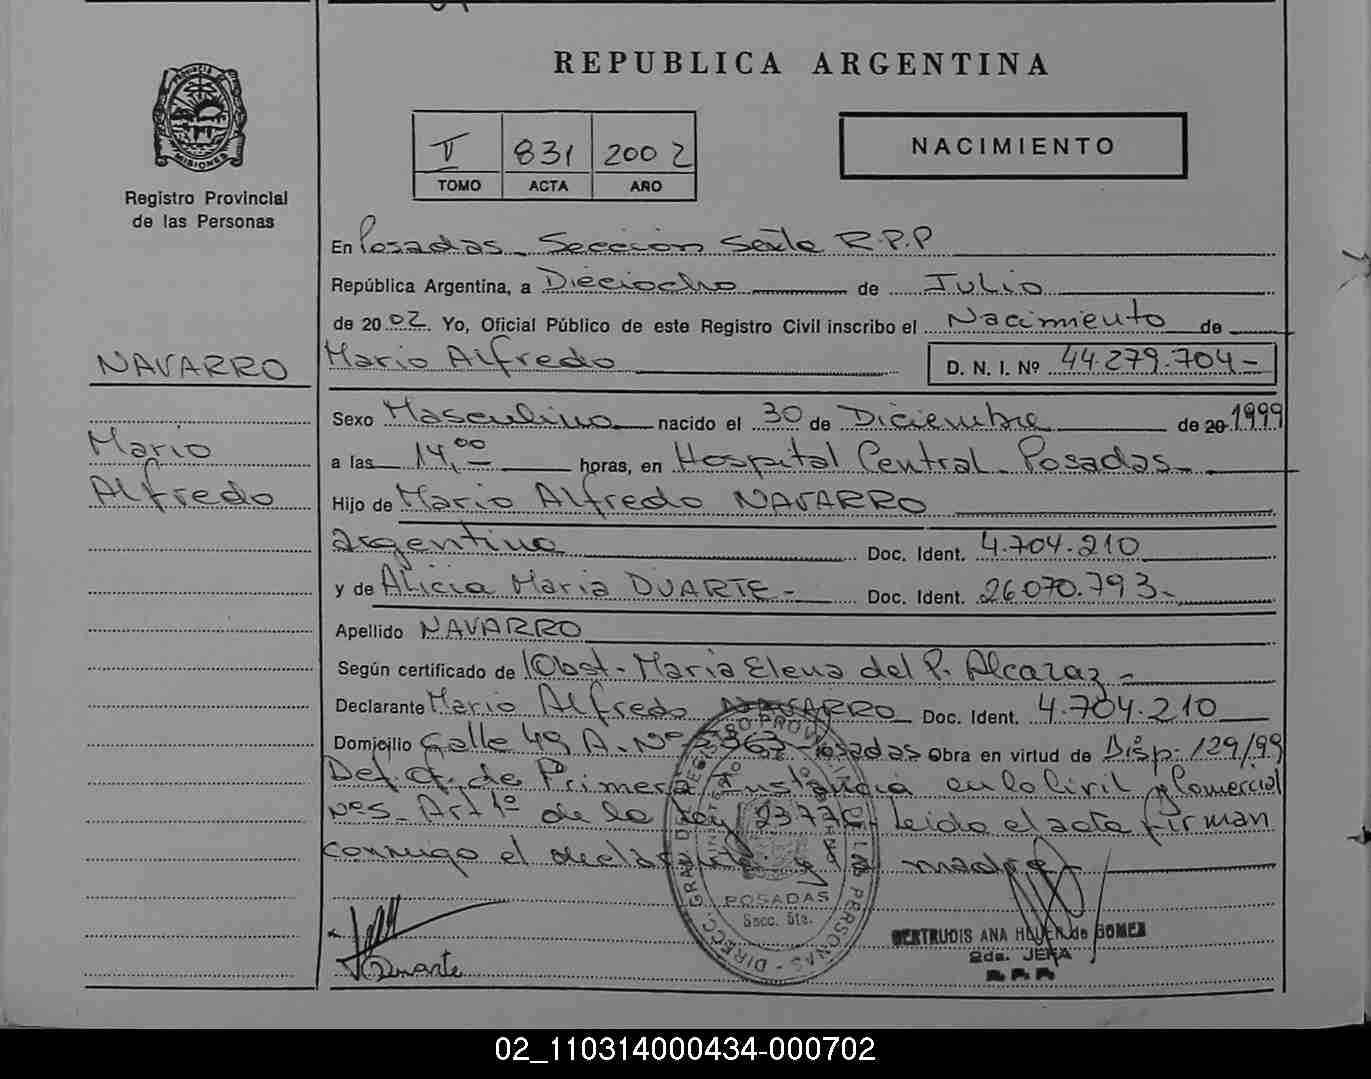 REPUBLICA ARGENTINA
MISIONES
Registro Provincial
de las Personas
V 831 2002
TOMO ACTA AÑO
NACIMIENTO
En Posadas - Sección Sexta R.P.P
República Argentina, a Dieciocho de Julio
de 2002. Yo, Oficial Público de este Registro Civil inscribo el Nacimiento de
Mario Alfredo D. N. I. Nº 44.279.704-
NAVARRO
Mario
Alfredo
Sexo Masculino nacido el 30 de Diciembre de 20 1999
a las 14,00 horas, en Hospital Central Posadas
Hijo de Mario Alfredo NAVARRO
argentino Doc. Ident. 4.704.210
y de Alicia Maria DUARTE - Doc. Ident. 26.070.793-
Apellido NAVARRO
Según certificado de Obst. Maria Elena del P. Alcaraz -
Declarante Mario Alfredo NAVARRO Doc. Ident. 4.704.210
Domicilio Calle 49 A. Nº Posadas Obra en virtud de Disp. 129/99
Def. Of. de Primera Instancia en lo Civil y Comercial
Nº5. Art 1º de la Ley Leído el acta firman
conmigo el declarante y la madre
POSADAS
Secc.
Duarte
GERTRUDIS ANA de GOMEZ
2da. JEFA
R.P.P.
02_110314000434-000702